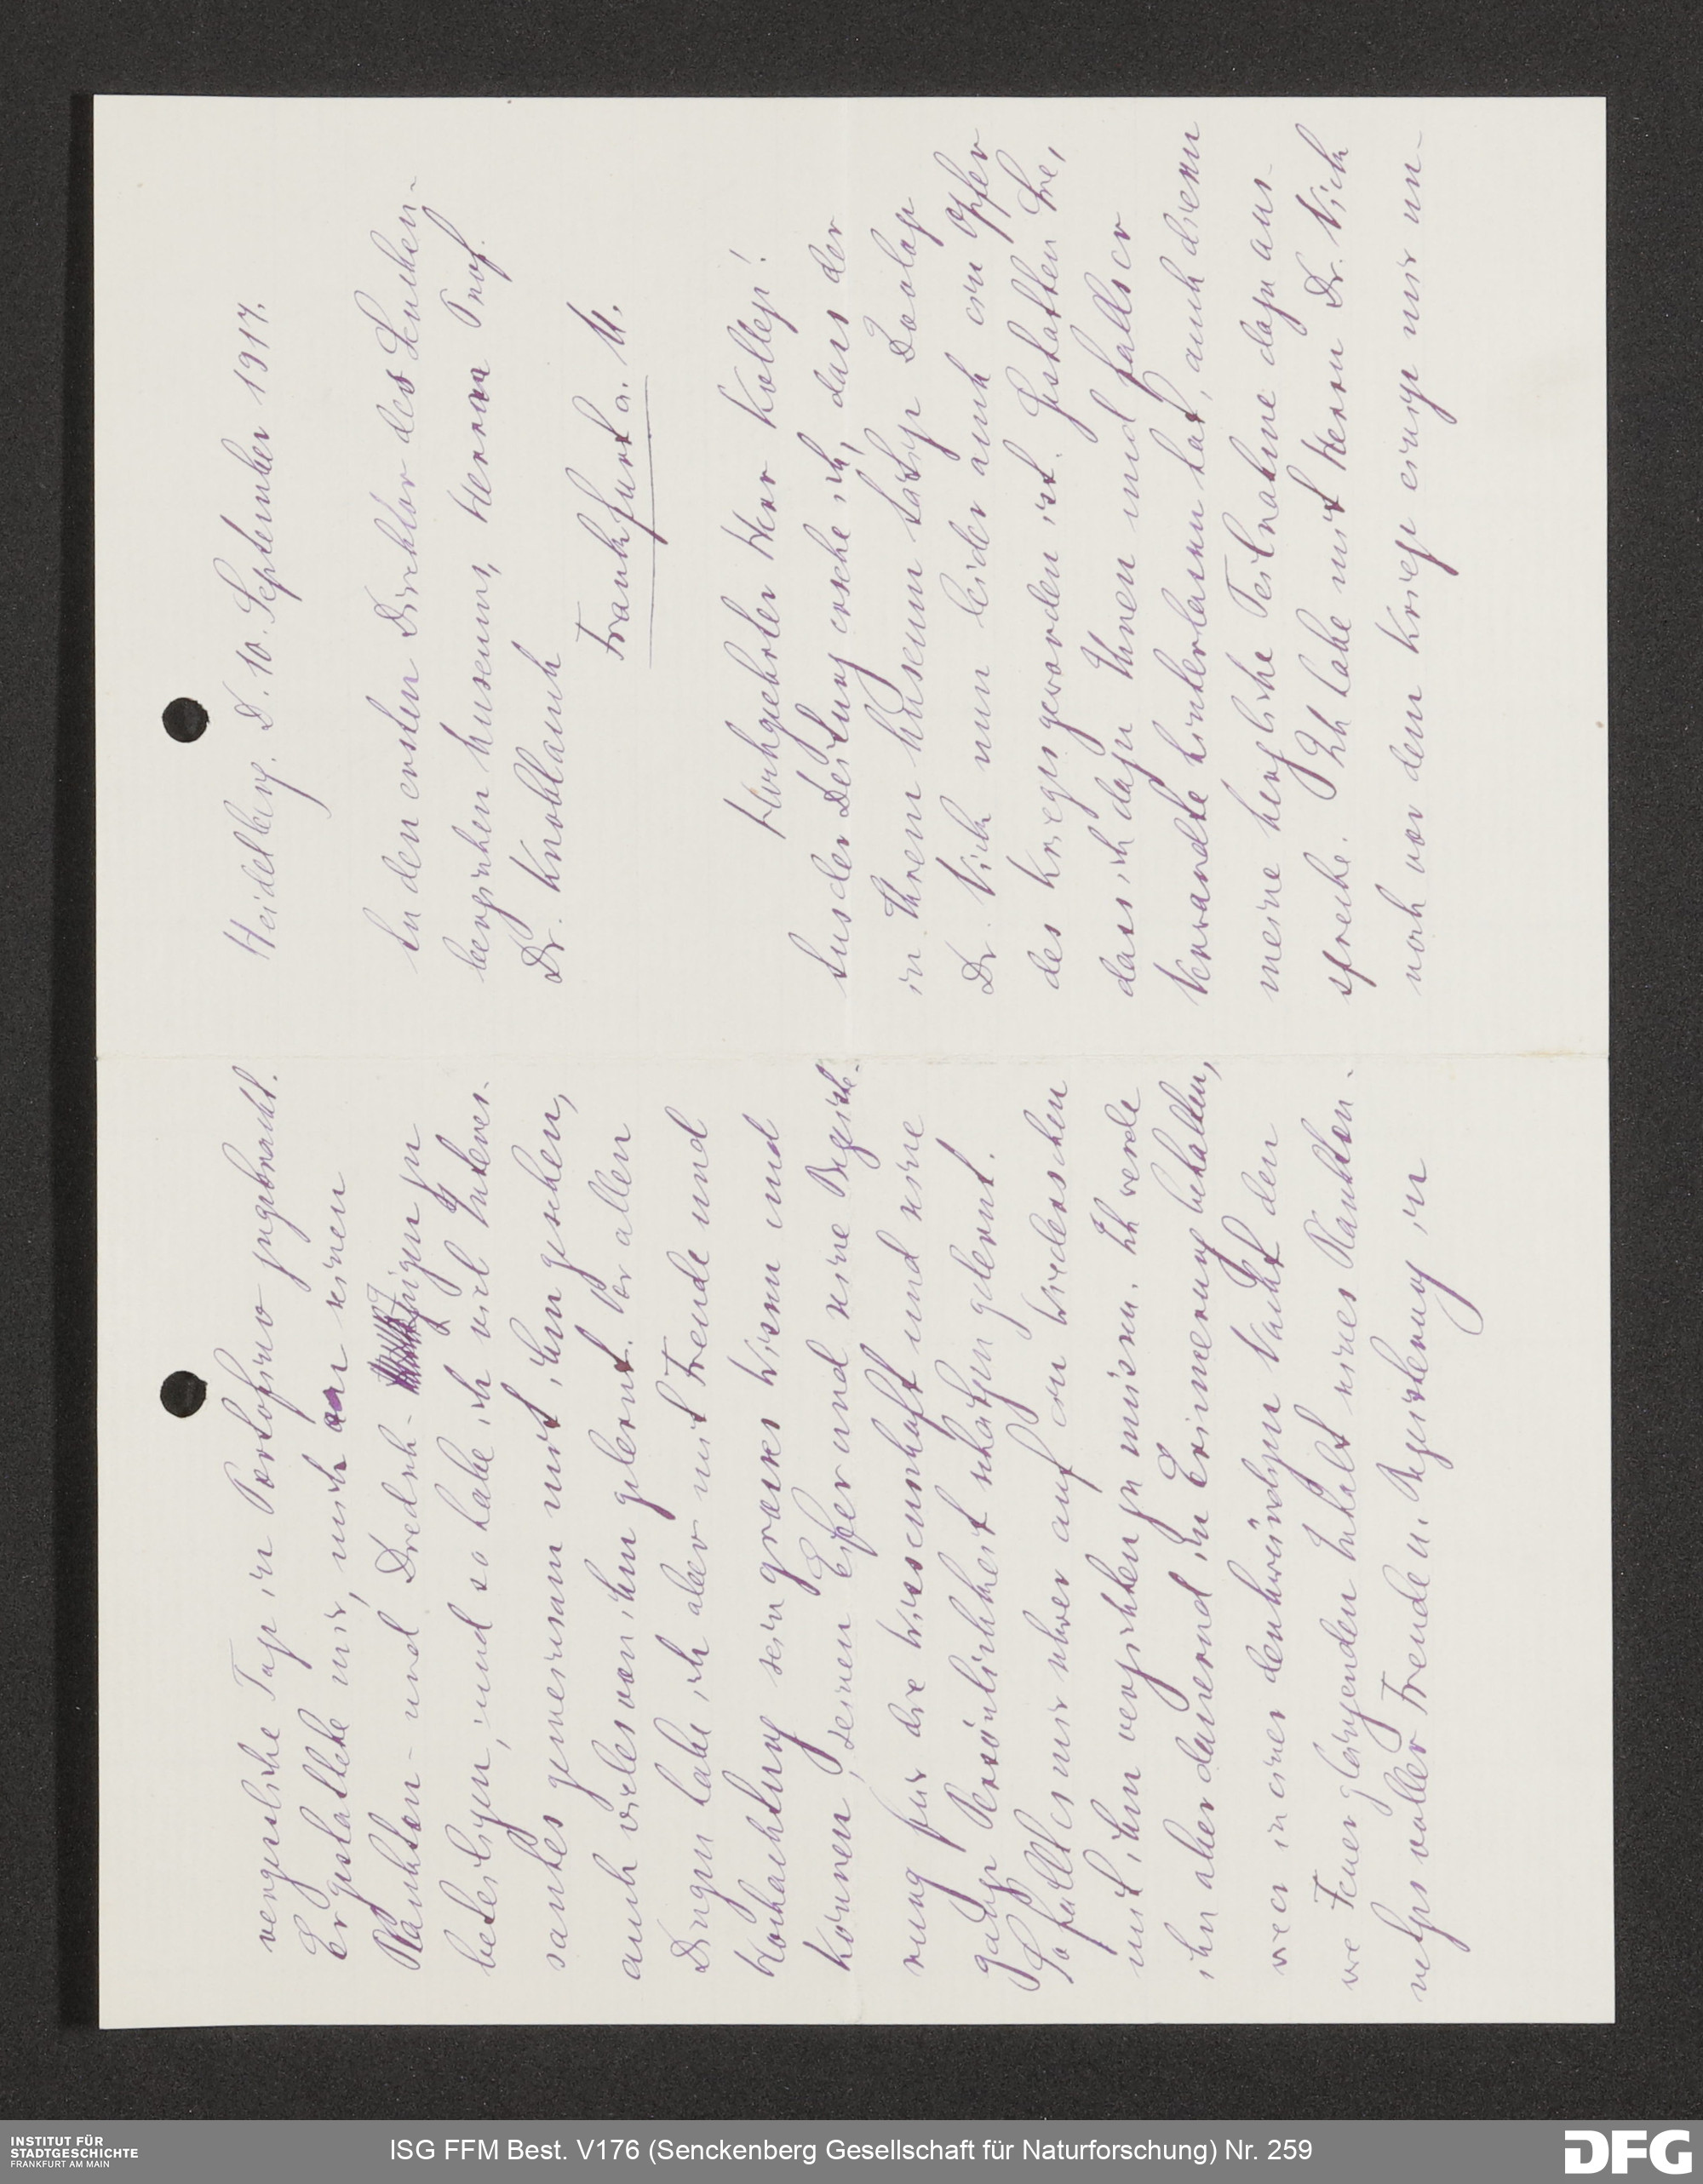 Heidelberg. D. 10. September 1917.
An den ersten Direktor des Sencken-
bergischen Museums, Herrn Prof.
Dr. Knoblauch
Frankfurt a. M.
Hochgeehrter Herr Kollege!
Aus der Zeitung ersehe ich, dass der
in Ihrem Museum tätige Zoologe
Dr. Nick nun leider auch ein Opfer
des Krieges geworden ist. Gestatten Sie,
dass ich dazu Ihnen und falls er
Verwandte hinterlassen hat, auch diesen
meine herzliche Teilnahme dazu aus-
spreche. Ich habe mit Herrn Dr. Nick
noch vor dem Kriege einige mir un-
vergessliche Tage in Portofino zugebracht.
Er gestattete mir, mich an seinen
Plankton- und Dredsch- zügen zu
beteiligen, und so habe ich viel Interes-
santes gemeinsam mit ihm gesehen,
auch vieles von ihm gelernt. Vor allen
Dingen habe ich aber mit Freude und
Hochachtung sein grosses Wissen und
Können, seinen Eifer und seine Begeiste-
rung für die Wissenschaft und seine
ganze Persönlichkeit schätzen gelernt.
So fällt es mir schwer auf ein Wiedersehen
mit ihm verzichten zu müssen. Ich werde
ihn aber dauernd in Erinnerung behalten,
wie er in einer denkwürdigen Nacht den
wie Feuer glänzenden Inhalt seines Plankton-
netzes voller Freude u. Begeisterung in
INSTITUT FÜR
STADTGESCHICHTE
FRANKFURT AM MAIN
ISG FFM Best. V176 (Senckenberg Gesellschaft für Naturforschung) Nr. 259
DFG